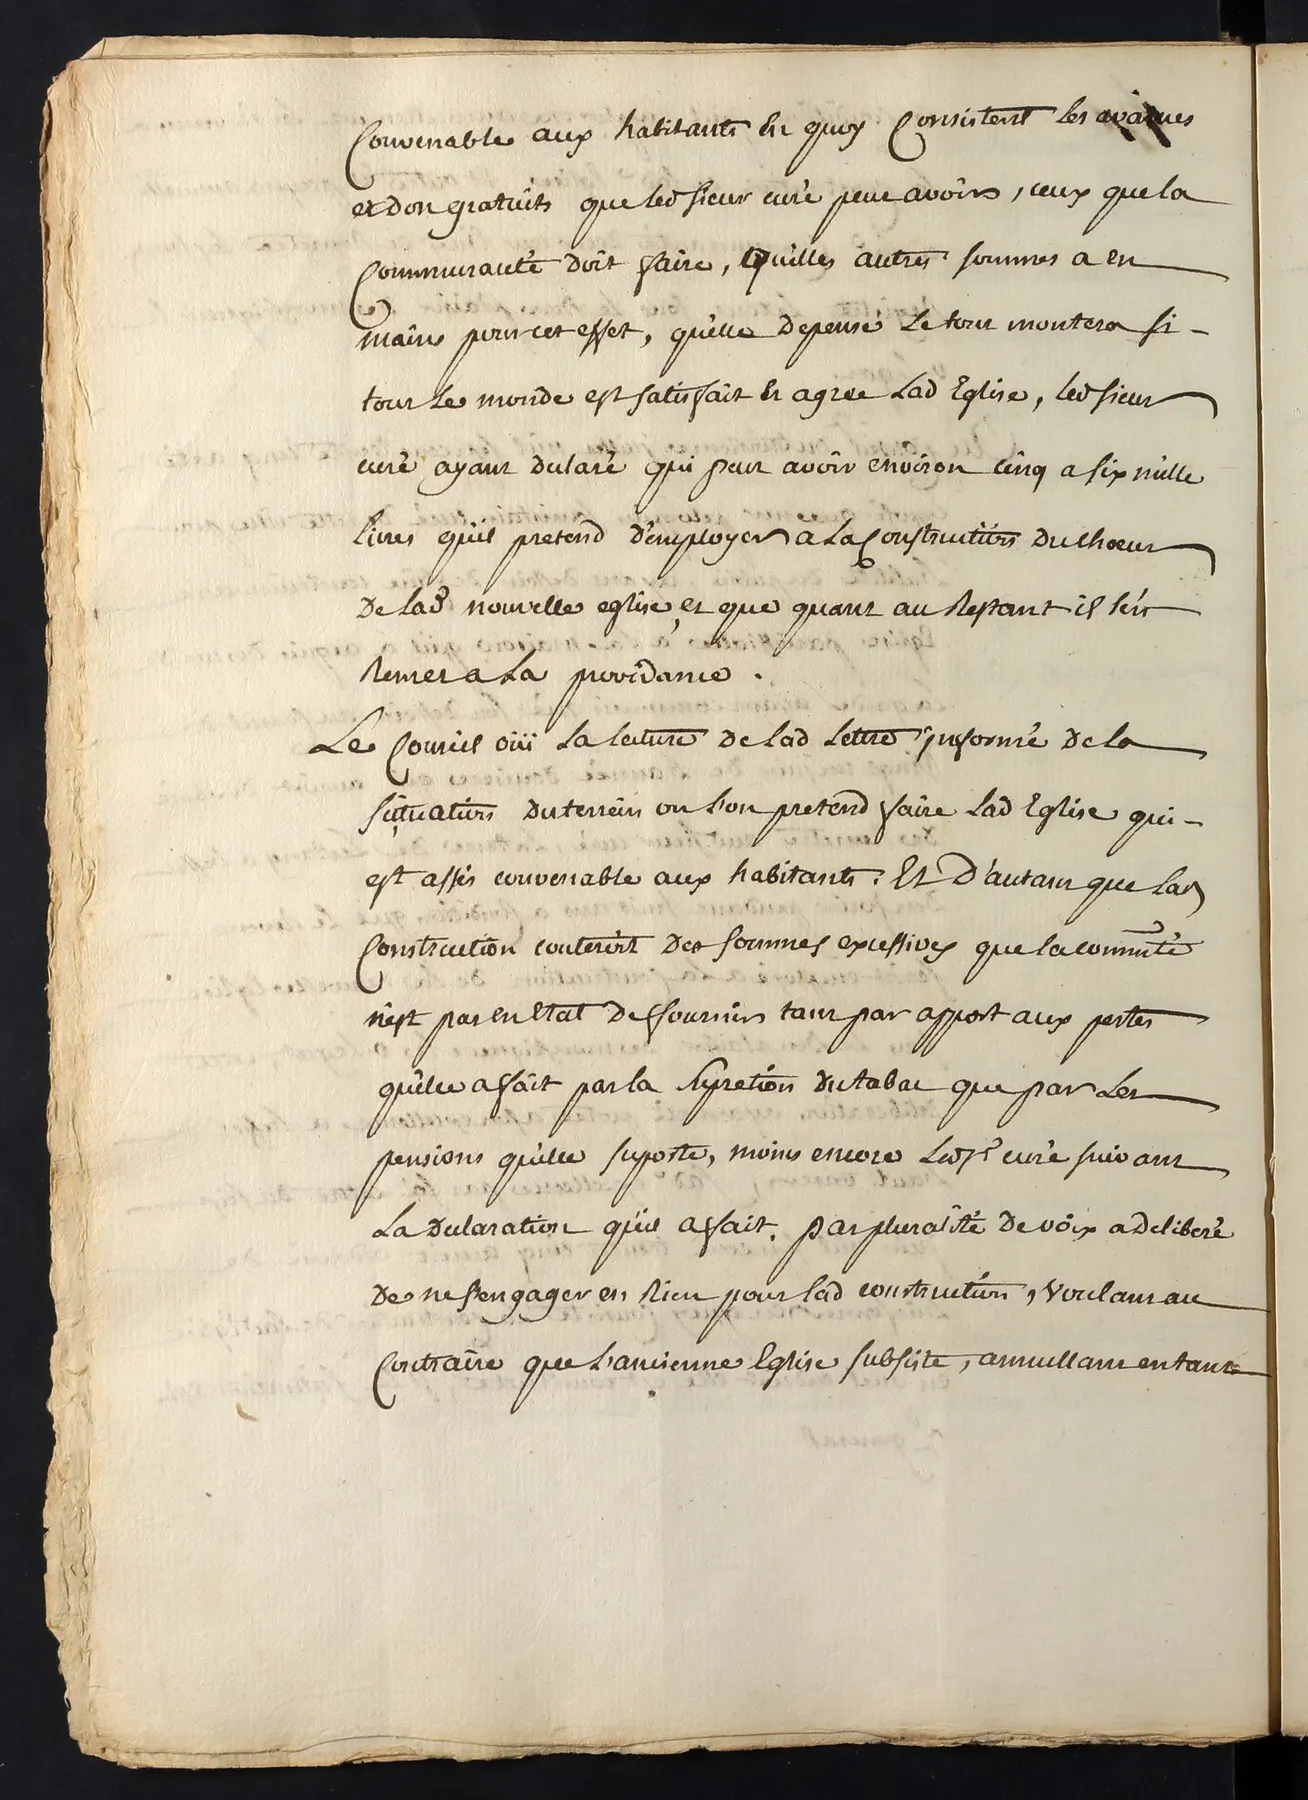 Convenable aux habitants En quoy Consistent les
et don gratuits que led sieur curé peut avoirs, ceux que la
Communauté doit faire, Quilles autres sommes a en
mains pour cet effet, quelle depense Le tout montera si-
tout Le monde est satisfait Et agree Lad Eglise, led sieur
curé ayant declaré qui peut avoir environ cinq a six mille
livres quil pretend d'employer a La Construction du choeur
De lad nouvelle eglise, et que quant au Restant il s'en
Remet a La providance.
Le Conseil oüi La lecture De lad Lettre informé De la
situation du terrein ou l'on pretend faire Lad Eglise qui-
est assés convenable aux habitants: Et D'autant que lad
Construction couteroit Des sommes excessives que la commté
nest pas en Etat De fournir tant par apport aux pertes
quelle a fait par la du tabac que par Les
pensions quelle suporte, moins encore Led sr curé suivant
La Declaration quil a fait. par pluralité De voix a deliberé
De ne s'engager en Rien pour lad construction, voulant au
Contraire que L'ancienne Eglise subsiste, annullant en tant